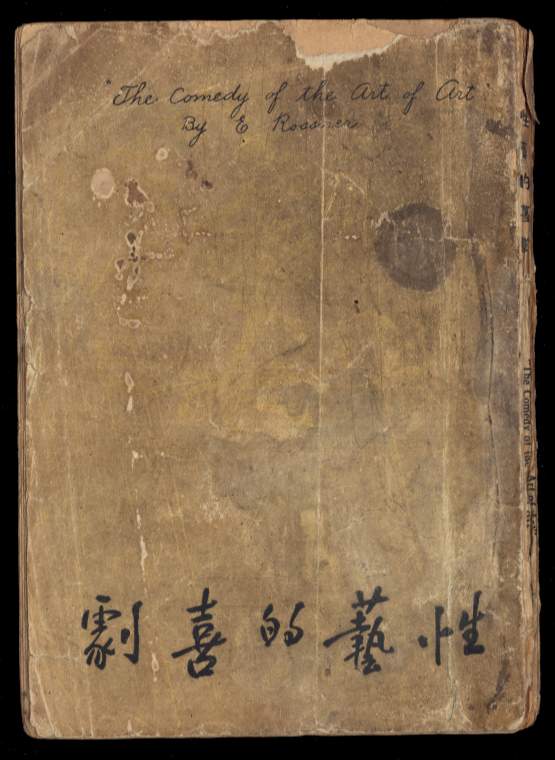 "The Comedy of the Art of Art"
By E Rossner
性藝的喜劇
的喜劇
"The Comedy of the Art of